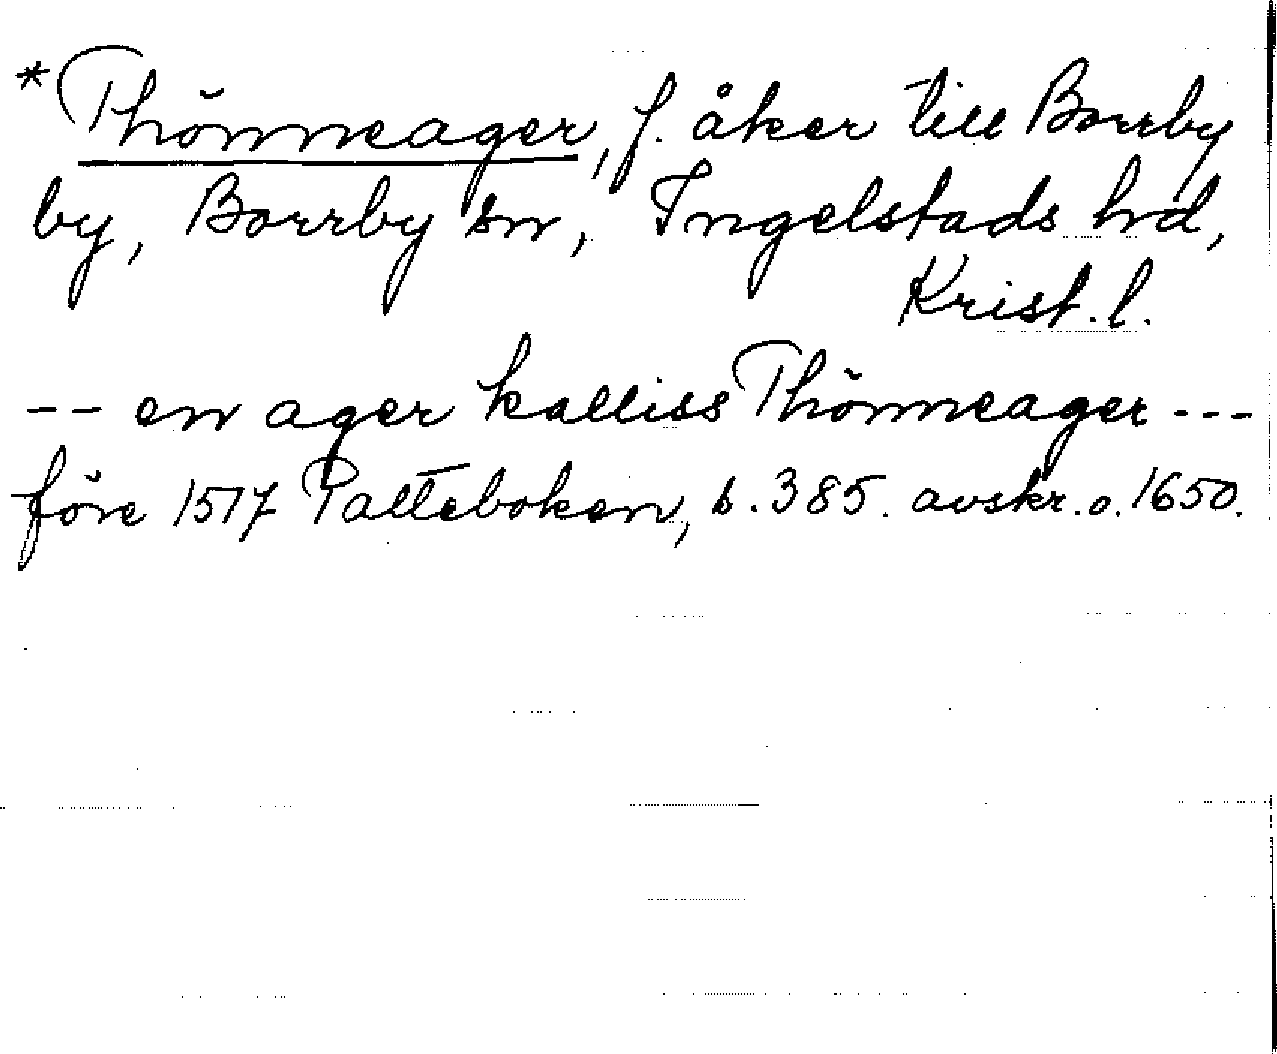 *Thörmeager, f. åker till Borrby
by, Borrby sn, Ingelstads hd,
Krist. l.
-- en ager kalliss Thörmeager ---
före 1517 Palteboken, s. 385. avskr. o. 1650.